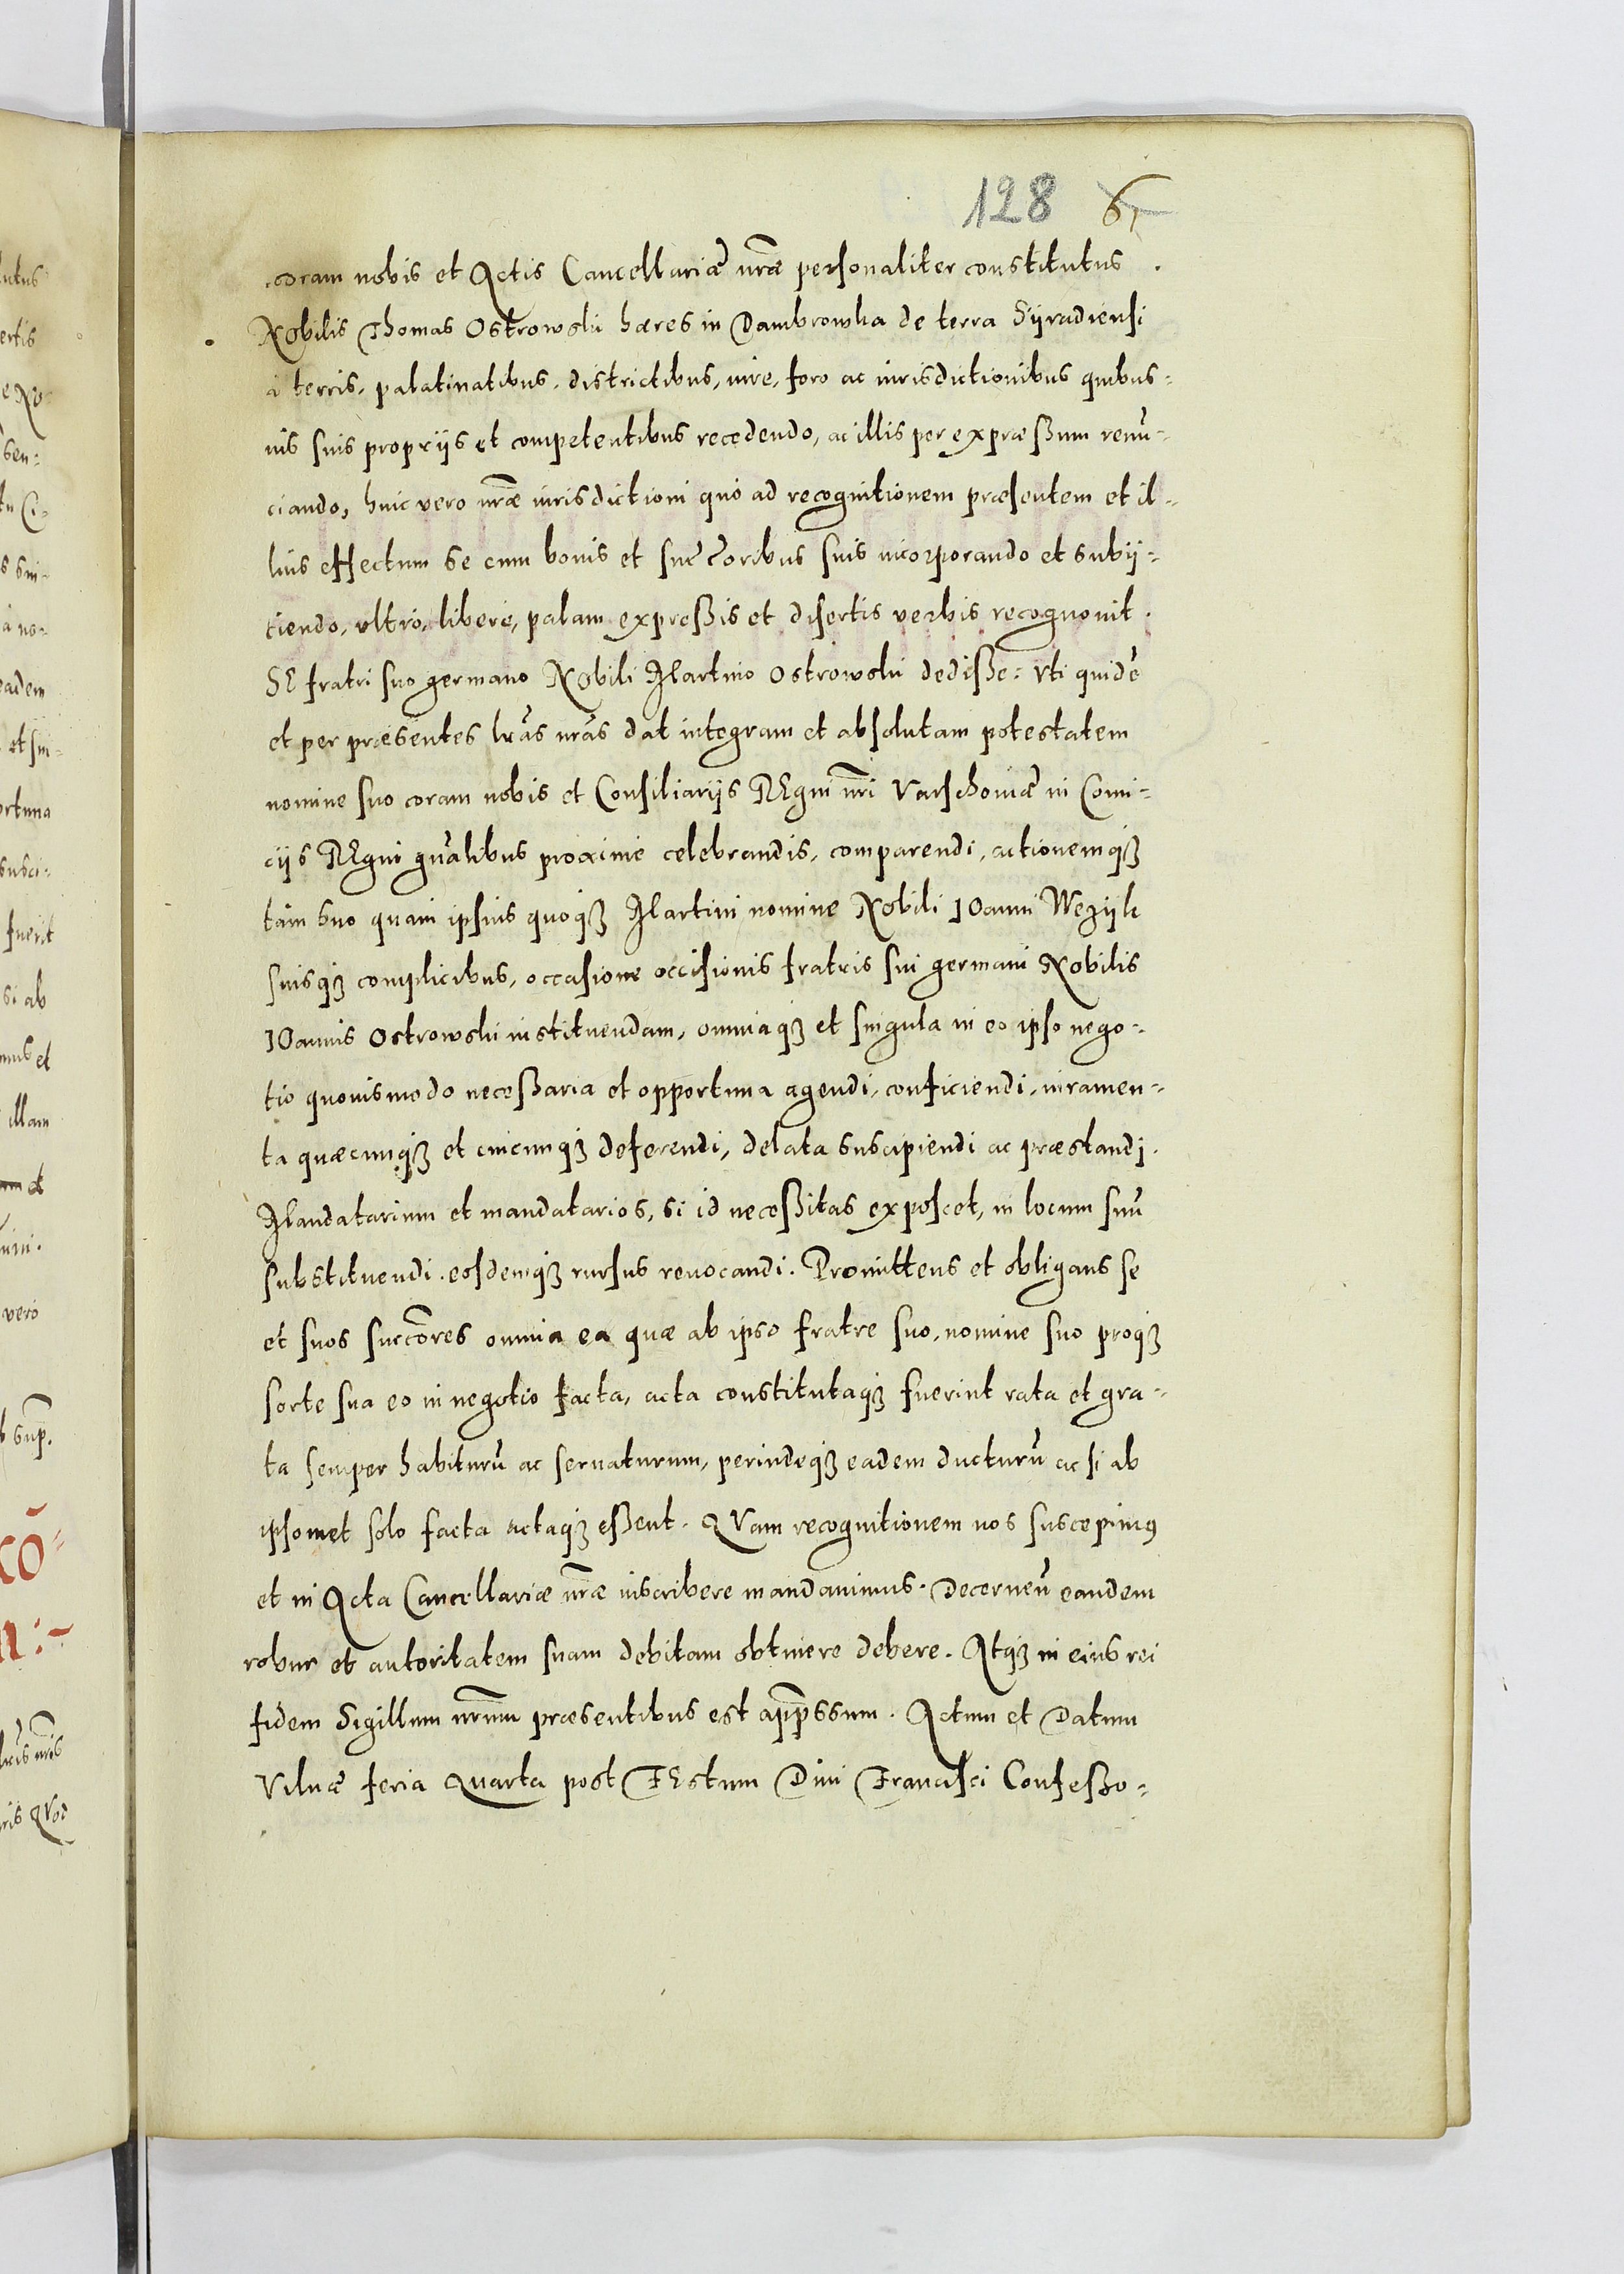 128 61
coram nobis et Actis Cancellariæ nr̃æ personaliter constitutus .
Nobilis Thomas Ostrowski hæres in Dambrowka de terra Siradiensi
à terris, palatinatibus, districtibus, iure, foro ac iurisdictionibus quibus-
uis suis proprijs et competentibus recedendo, ac illis per expræssum renũ-
ciando, huic vero nr̃æ iurisdictioni quo ad recognitionem præsentem et il-
lius effectum se cum bonis et succ̃oribus suis incorporando et subij-
tiendo, vltrò, liberè, palam expressis et disertis verbis recognouit.
SE fratri suo germano Nobili Martino Ostrowski dedisse: Vti quidẽ
et per præsentes lr̃as nr̃as dat integram et absolutam potestatem
nomine suo coram nobis et Consiliarijs REgni nr̃i Varschouiæ in Comi-
cijs REgni gñalibus proxime celebrandis, comparendi, actionemqꝫ
tàm suo quam ipsius quoqꝫ Martini nomine Nobili IOanni Wezyk
suisqꝫ complicibus, occasione occisionis fratris sui germani Nobilis
IOannis Ostrowski instituendam, omniaqꝫ et singula in eo ipso nego-
tio quouismodo necessaria et opportuna agendi, conficiendi, iuramen-
ta quæcunqꝫ et cuicunqꝫ deferendi, delata suscipiendi ac præstandi.
Mandatarium et mandatarios, si id necessitas exposcet, in locum suũ
substituendi, eosdemqꝫ rursus reuocandi. Promittens et obligans se
et suos succ̃ores omnia ea quæ ab ipso fratre suo, nomine suo proqꝫ
sorte sua eo in negotio facta, acta constitutaqꝫ fuerint rata et gra-
ta semper habiturũ ac seruaturum, perindeqꝫ eadem ducturũ ac si ab
ipsomet solo facta actaqꝫ essent. QVam recognitionem nos suscepimꝰ
et in Acta Cancellariæ nr̃æ inscribere mandauimus. Decerneñ eandem
robur et autoritatem suam debitam obtinere debere. Atqꝫ in eius rei
fidem Sigillum nr̃um præsentibus est app̃ssum. Actum et Datum
Vilnæ feria Quarta post FEstum Diui Francisci Confesso-